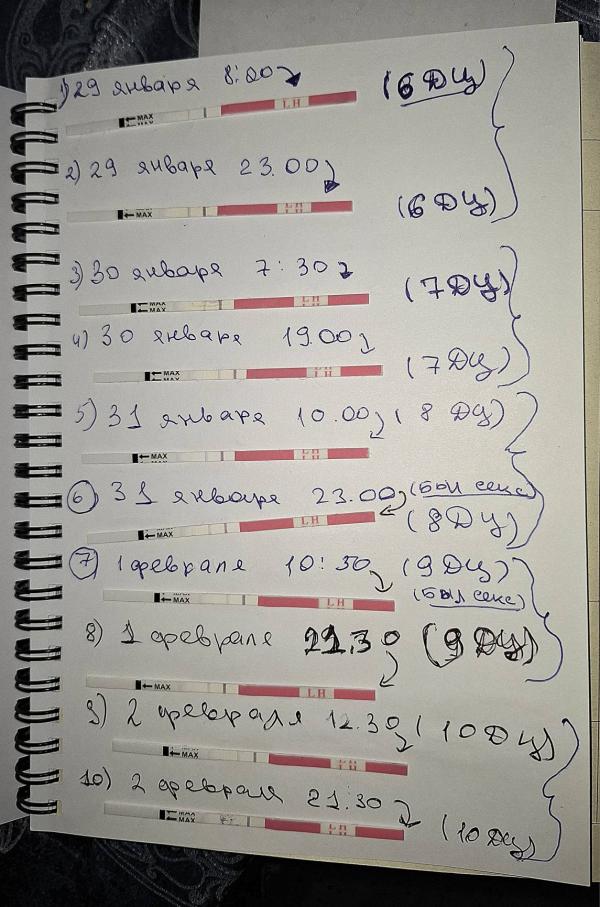 1) 29 января 8:00 (6 ДЦ)
MAX LH
MAX
2) 29 января 23.00
(6 ДЦ)
MAX LH
3) 30 января 7:30
(7 ДЦ)
MAX LH
MAX
4) 30 января 19.00
(7 ДЦ)
MAX LH
MAX
5) 31 января 10.00 (8 ДЦ)
MAX
6) 31 января 23.00 (был секс)
(8 ДЦ)
MAX LH
7) 1 февраля 10:30 (9 ДЦ)
(был секс)
MAX LH
8) 1 февраля 21.30 (9 ДЦ)
MAX LH
9) 2 февраля 12.30 (10 ДЦ)
MAX LH
10) 2 февраля 21.30
(10 ДЦ)
MAX LH
MAX